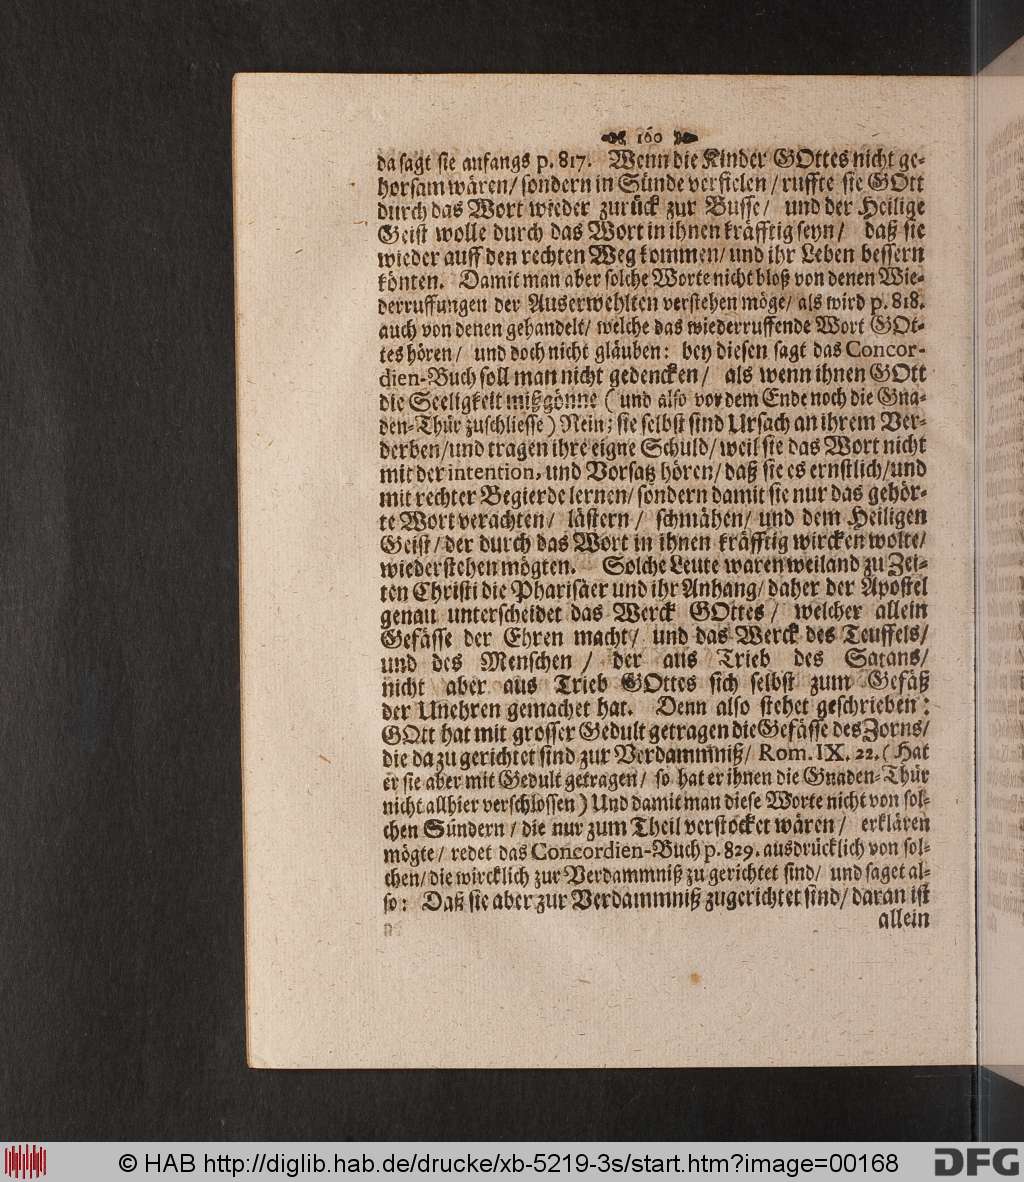 160
da sagt sie anfangs p. 817. Wenn die Kinder GOttes nicht ge-
horsam wären/ sondern in Sünde verfielen / ruffte sie GOtt
durch das Wort wieder zurück zur Busse/ und der Heilige
Geist wolle durch das Wort in ihnen kräfftig seyn/ daß sie
wieder auff den rechten Weg kommen/ und ihr Leben bessern
könten. Damit man aber solche Worte nicht bloß von denen Wie-
derruffungen der Auserwehlten verstehen möge/ als wird p. 818.
auch von denen gehandelt/ welche das wiederruffende Wort GOt-
tes hören/ und doch nicht gläuben: bey diesen sagt das Concor-
dien-Buch soll man nicht gedencken/ als wenn ihnen GOtt
die Seeligkeit mißgönne ( und also vor dem Ende noch die Gna-
den-Thür zuschliesse ) Nein; sie selbst sind Ursach an ihrem Ver-
derben/und tragen ihre eigne Schuld/ weil sie das Wort nicht
mit der intention, und Vorsatz hören/ daß sie es ernstlich/und
mit rechter Begierde lernen/ sondern damit sie nur das gehör-
te Wort verachten/ lästern/ schmähen/ und dem Heiligen
Geist/ der durch das Wort in ihnen kräfftig wircken wolte/
wiederstehen mögten. Solche Leute waren weiland zu Zei-
ten Christi die Pharisäer und ihr Anhang/ daher der Apostel
genau unterscheidet das Werck GOttes/ welcher allein
Gefässe der Ehren macht/ und das Werck des Teuffels/
und des Menschen / der aus Trieb des Satans/
nicht aber aus Trieb GOttes sich selbst zum Gefäß
der Unehren gemachet hat. Denn also stehet geschrieben:
GOtt hat mit grosser Gedult getragen die Gefässe des Zorns/
die da zu gerichtet sind zur Verdammniß/ Rom. IX. 22. ( Hat
er sie aber mit Gedult getragen/ so hat er ihnen die Gnaden-Thür
nicht allhier verschlossen ) Und damit man diese Worte nicht von sol-
chen Sündern / die nur zum Theil verstocket wären/ erklären
mögte/ redet das Concordien-Buch p. 829. ausdrücklich von sol-
chen/ die wircklich zur Verdammniß zu gerichtet sind/ und saget al-
so: Daß sie aber zur Verdammniß zugerichtet sind/ daran ist
allein
© HAB http://diglib.hab.de/drucke/xb-5219-3s/start.htm?image=00168
DFG